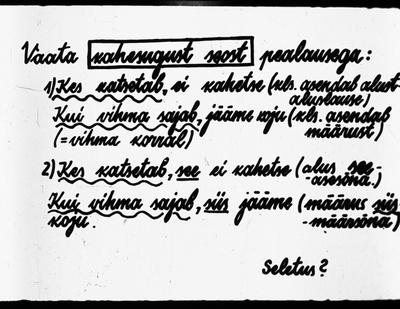 Vaata kahesugust seost pealausega:
1) Kes katsetab, ei kahetse (kls. asendab alust-
aluslause)
Kui vihma sajab, jääme koju (kls. asendab
(= vihma korral) määrust)
2) Kes katsetab, see ei kahetse (alus see-
-asesõna.)
Kui vihma sajab, siis jääme (määrus siis-
koju. -määrsõna)
Seletus?